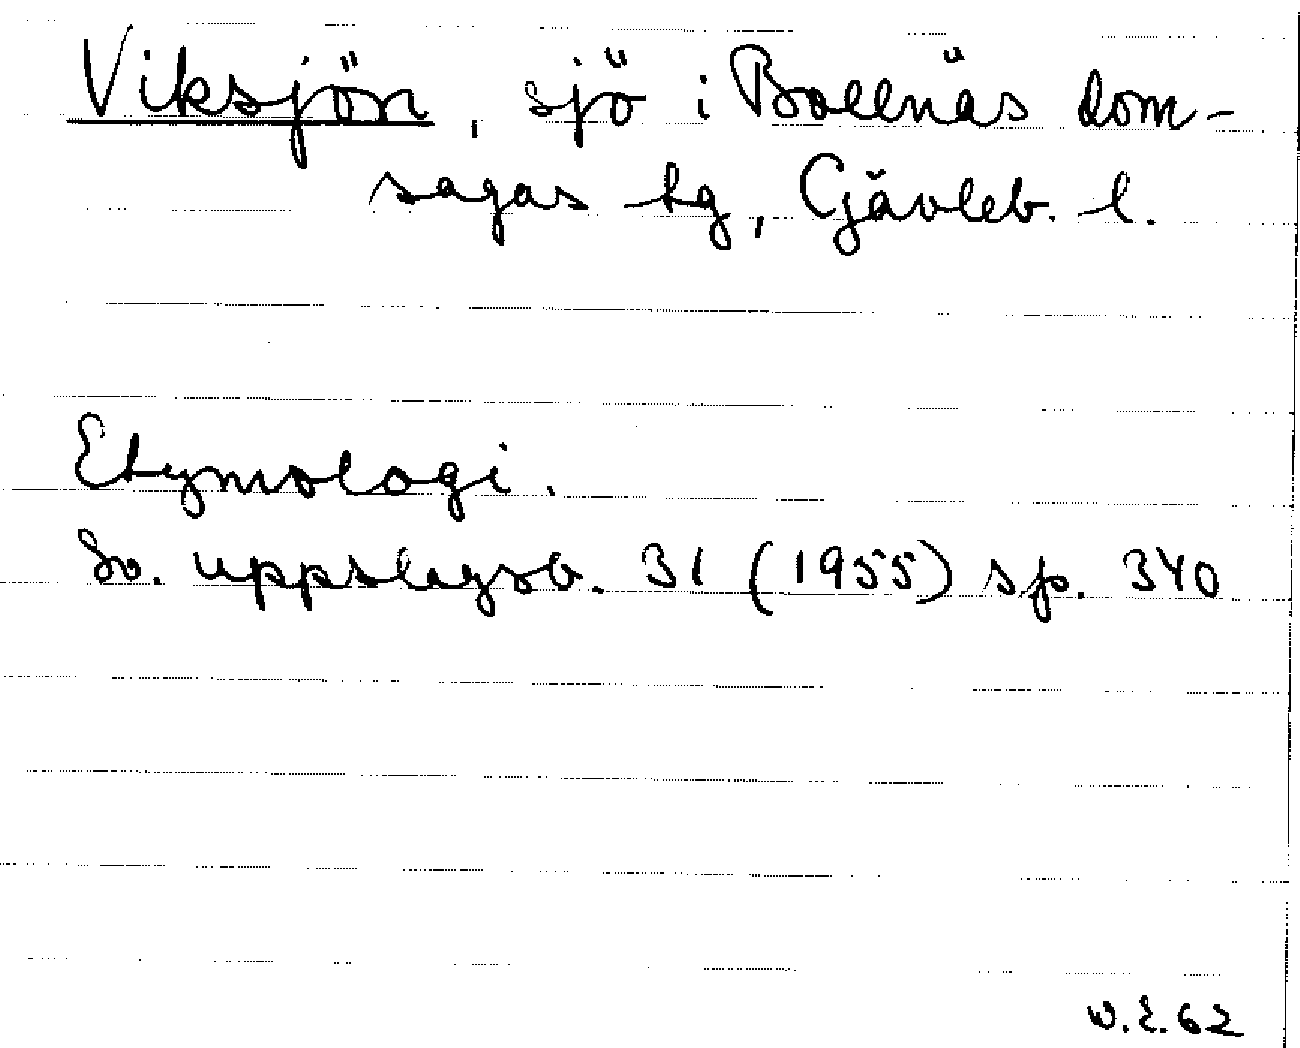 Viksjön, sjö i Bollnäs dom-
sagas tg, Gävleb. l.
Etymologi.
Sv. uppslagsb. 31 (1955) sp. 340
W.E.62